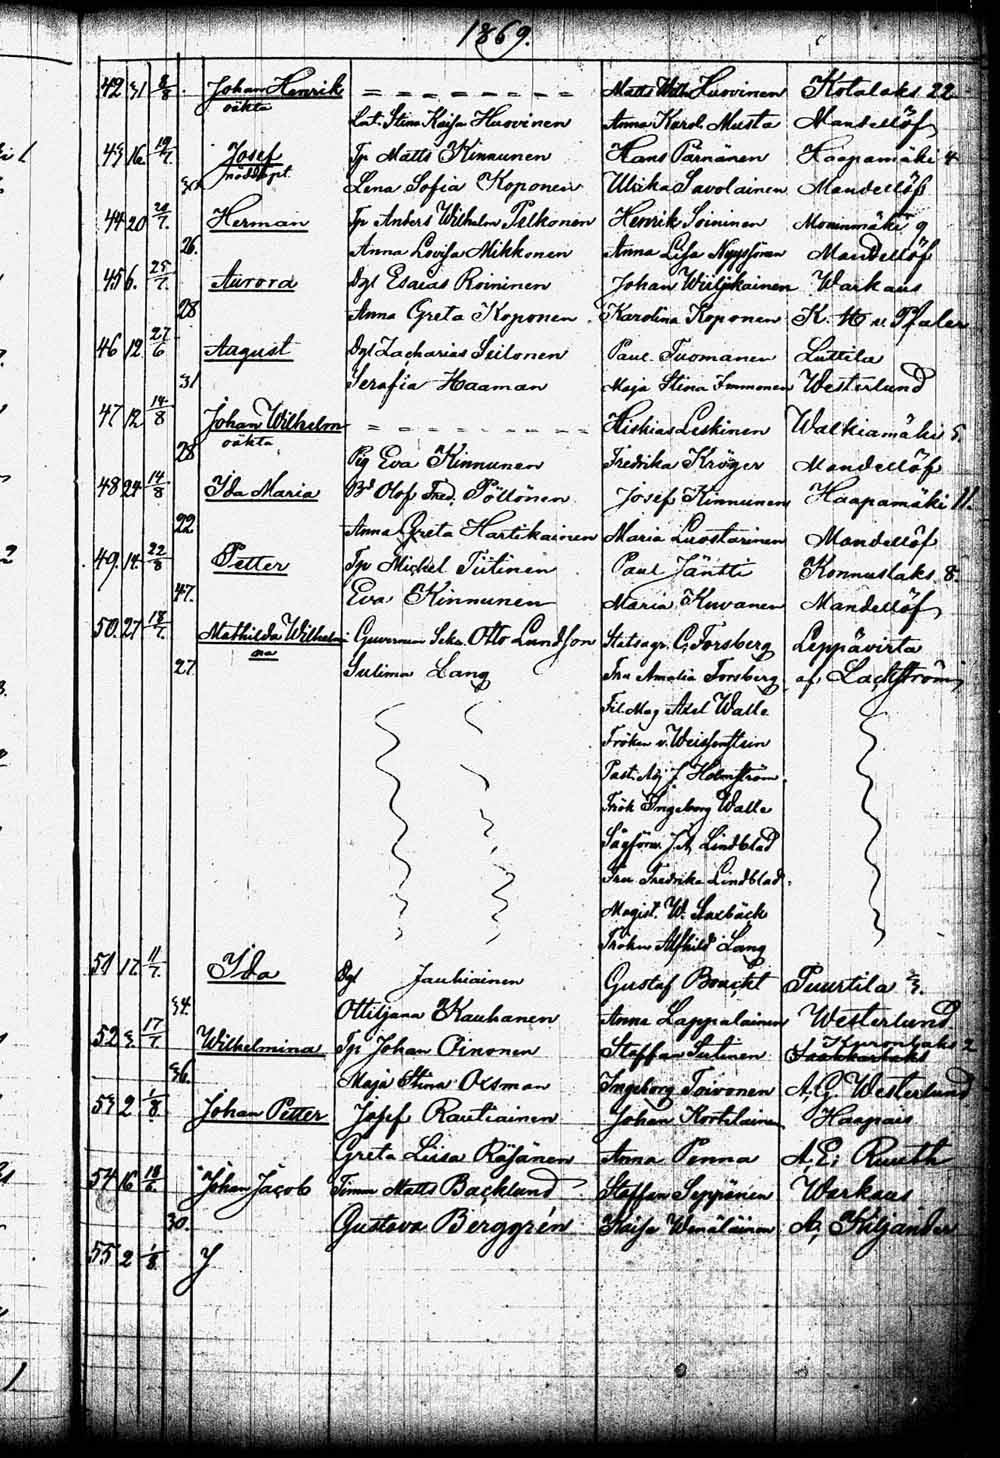 1869.
42 31 8/8. Johan Henrik = = = = = = = Matts Wilh. Huovinen Kotalaks 22
oäkta
Lat. Stina Kaisa Huovinen Anna Karol. Musta Mandellöf
43 16 19/7. Josef Tp Matts Kinnunen Hans Parnänen Haapamäki 4
nöddöpt.
30. Lena Sofia Koponen Ulrika Savolainen Mandellöf
44 20 20/7. Herman Tp Anders Wilhelm Pelkonen Henrik Soininen Moninmäki 9
26. Anna Lovisa Mikkonen Anna Lisa Nyyssönen Mandellöf
45 6. 25/7. Aurora Dgl Esaias Roininen Johan Wiiljakainen Warkaus
28. Anna Greta Koponen Karolina Koponen K. H. v. Pfaler
46 12 27/6 August Dgl Zacharias Seilonen Paul Tuomanen Luttila
31 Serafia Haaman Maja Stina Immonen Westerlund
47 12 14/8 Johan Wilhelm = = = = = = = Hiskias Leskinen Walkiamäki 5.
oäkta
28 Pig Eva Kinnunen Fredrika Kröger Mandellöf
48 24 14/8 Ida Maria Bd Olof Fred. Pöllönen Josef Kinnunen Haapamäki 11.
22. Anna Greta Hartikainen Maria Luostarinen Mandellöf
49. 14. 22/8 Petter Tp Michel Tiitinen Paul Jäntti Konnuslaks 8.
47. Eva Kinnunen Maria Kuvanen Mandellöf
50. 27 18/7. Mathilda Wilhelmi- Guvernem Sekr. Otto Lundson Statsagr. C. Forsberg Leppävirta
na
27. Sulima Lang Fru Amalia Forsberg af Lackström
Fil. Mag Axel Walle
Fröken v. Weissenstein
Past. Adj J Holmström
Frök Ingeborg Walle
Sågförv. J. A. Lindblad
Fru Fredrika Lindblad.
Magist. W. Saxbäck
Fröken Alfhild Lang
51 17. 11/7. Ida Dgl Jauhiainen Gustaf Boucht Puurtila 3.
34. Ottiljana Kauhanen Anna Lappalainen Westerlund
52 3. 17/7. Wilhelmina Tp Johan Oinonen Staffan Siitinen Kuronlaks 2
36. Maja Stina Oxman Ingeborg Toivonen A. G. Westerlund
53 2 1/8. Johan Petter Josef Rautiainen Johan Kortelainen Haapais
Greta Liisa Räsänen Anna Penna A. E. Ruuth
54 16 18/6. Johan Jacob Timm Matts Backlund Staffan Seppänen Warkaus
30. Gustava Berggrén Kaisa Wenäläinen A. Kiljander
55 2 1/8. J